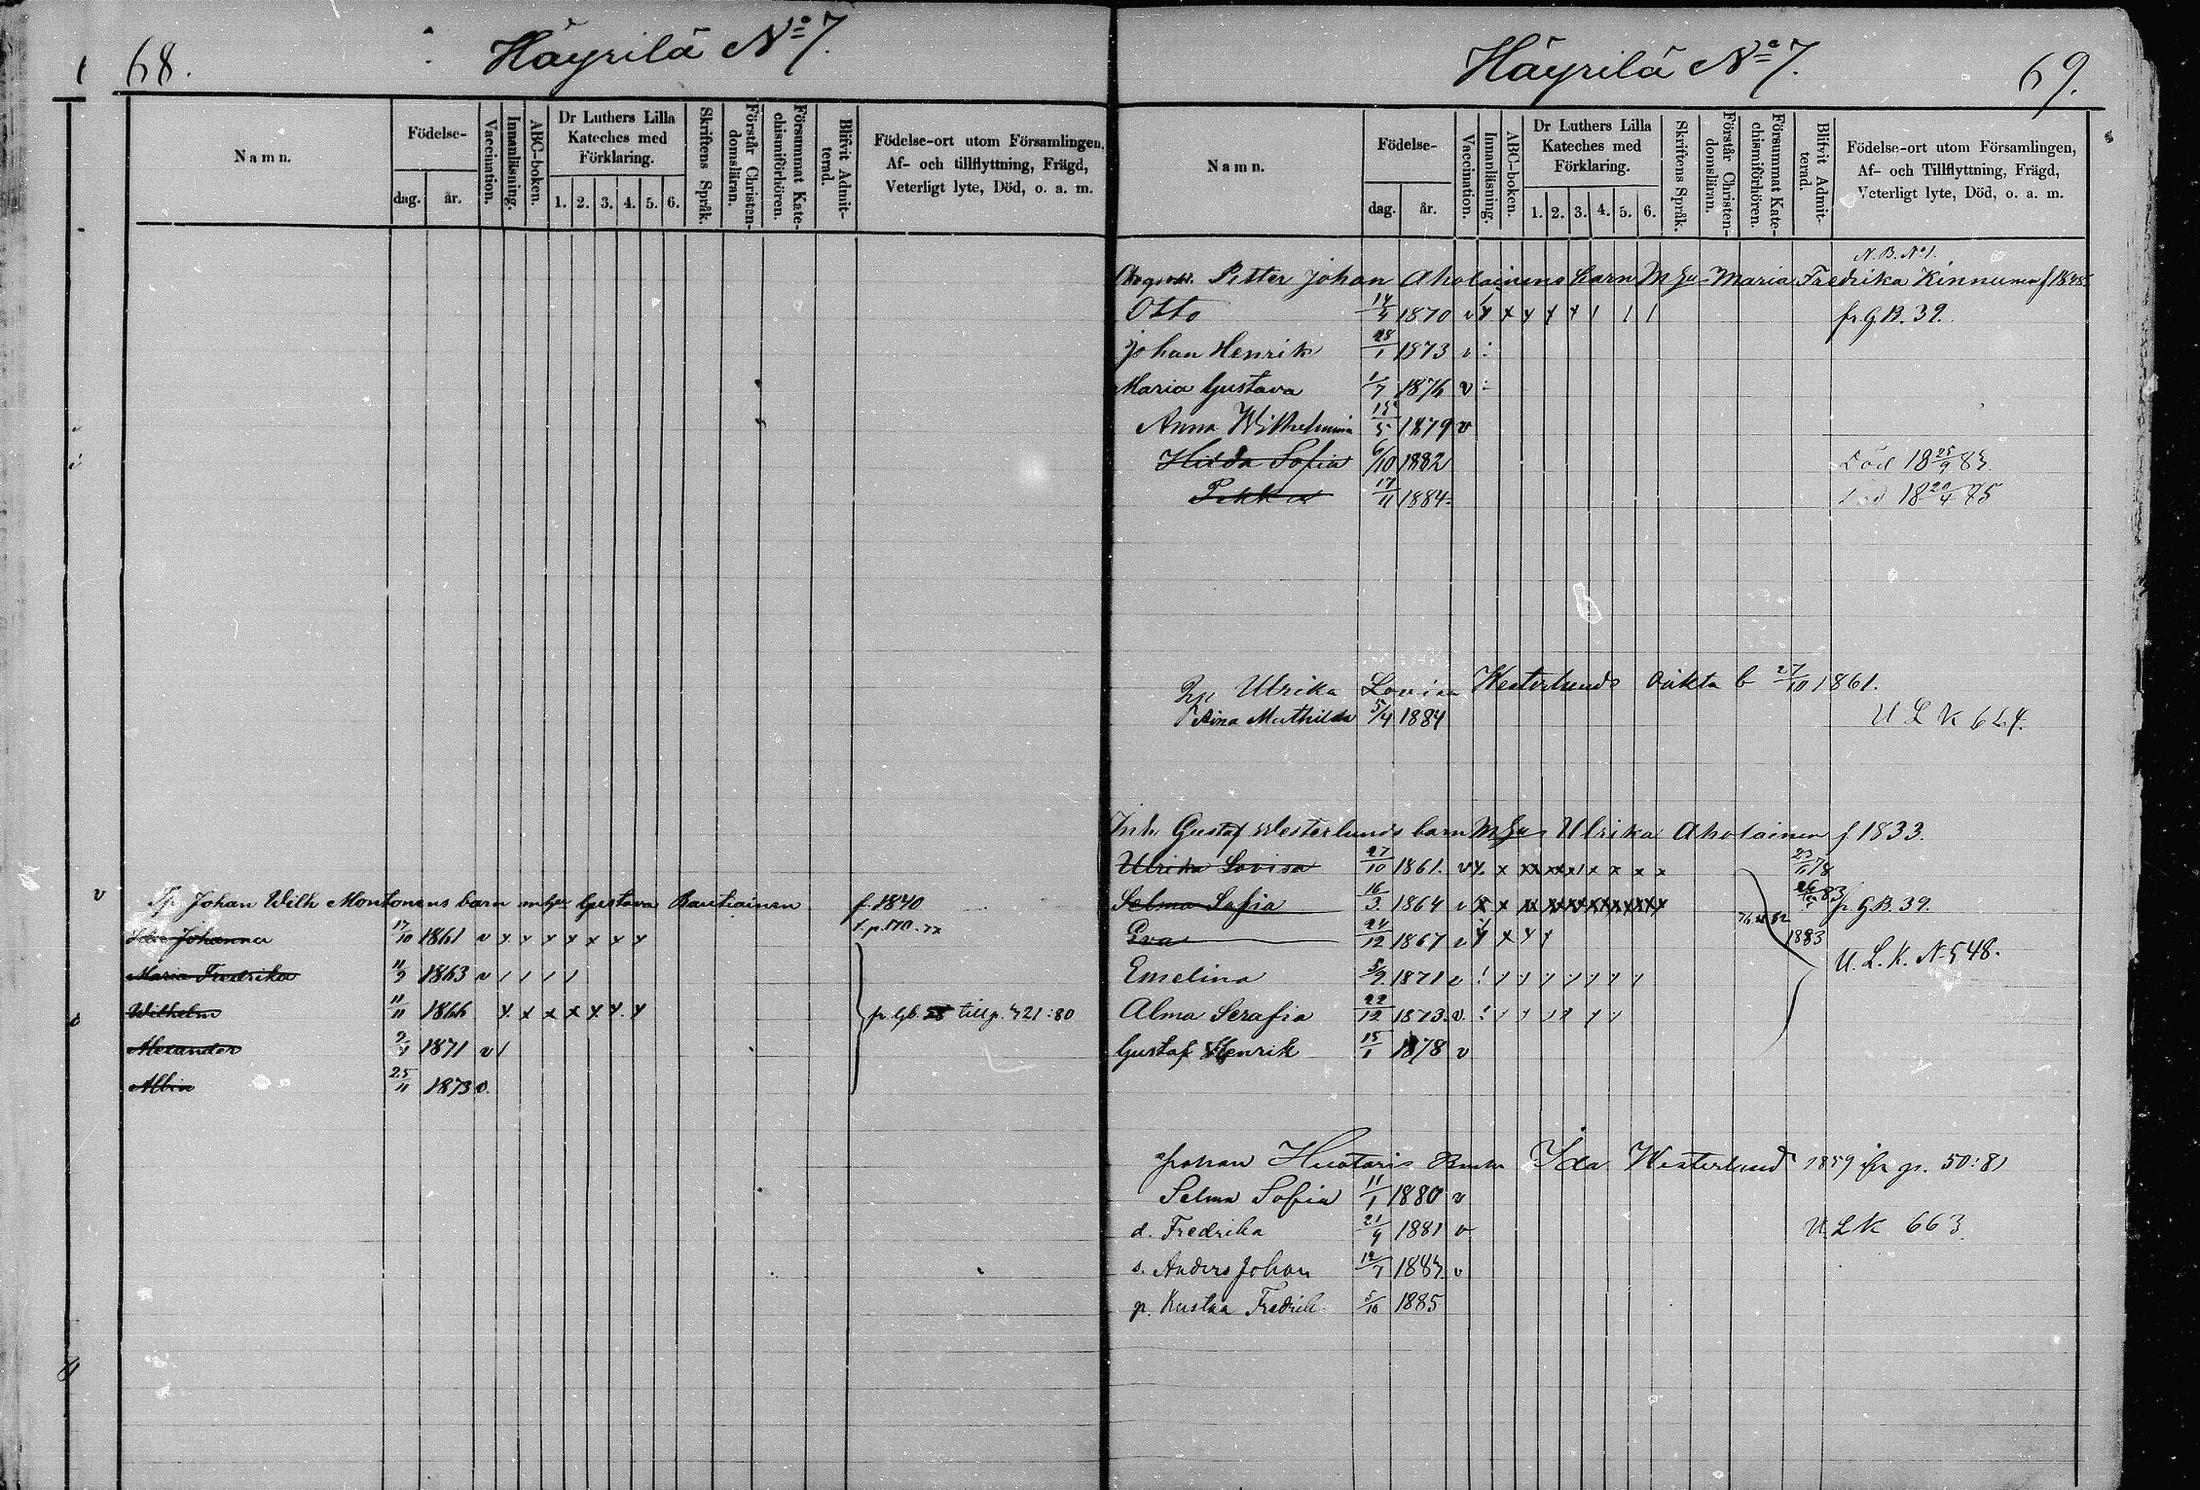 68.
Häyrilä No 7.
Namn.
Födelse-
dag.
år.
Vaccination.
Innanläsning.
ABC-boken.
Dr Luthers Lilla Kateches med Förklaring.
1. 2. 3. 4. 5. 6.
Skriftens Språk.
Förstår Christendomsläran.
Försummat Katechismiförhören.
Blifvit Admitterad.
Födelse-ort utom Församlingen,
Af- och tillflyttning, Frägd,
Veterligt lyte, Död, o. a. m.
Johan Wilh Montonens barn m hu Gustava Rautiainen f. 1840
Johanna 17/10 1861 v x x x x x x x
Maria Fredrika 11/9 1863 v / / / /
Wilhelm 11/11 1866 x x x x x x x
fr. gb. tillg. 421:80
Alexander 1871 v /
Albin 25/11 1873 v.
Häyrilä No 7.
69.
Namn.
Födelse-
dag.
år.
Vaccination.
Innanläsning.
ABC-boken.
Dr Luthers Lilla Kateches med Förklaring.
1. 2. 3. 4. 5. 6.
Skriftens Språk.
Förstår Christendomsläran.
Försummat Katechismiförhören.
Blifvit Admitterad.
Födelse-ort utom Församlingen,
Af- och Tillflyttning, Frägd,
Veterligt lyte, Död, o. a. m.
N.B. No 1.
Petter Johan Aholainens barn M hu Maria Fredrika Kinnunen f 1848
Otto 14/4 1870 v x x x x x / / / fr. G.B. 39.
Johan Henrik 28/1 1873 v
Maria Gustava 1/7 1876 v
Anna Wilhelmina 15/5 1879 v
Hilda Sofia 6/10 1882 Död 18 25/9 83.
Pekka 17/11 1884. Död 18 20/4 85
Ulrika Lovisa Westerlunds oäkta b 27/10 1861.
Aina Mathilda 5/4 1884 U L K 664.
Inh. Gustaf Westerlunds barn M hu Ulrika Aholainen f 1833.
Ulrika Lovisa 27/10 1861. v
Selma Sofia 16/3 1864 v fr. G.B. 39.
Eva 24/12 1867 v 1883
Emelina 5/9 1871 v U. L. K. N 548.
Alma Serafia 22/12 1873. v.
Gustaf Henrik 15/1 1878 v
Johan Huotaris Ida Westerlund 1859 fr p. 50:81
Selma Sofia 11/1 1880 v
d. Fredrika 21/9 1881 v U L K 663
s. Anders Johan 12/7 1883 v
g. Kustaa Fredrik 5/10 1885